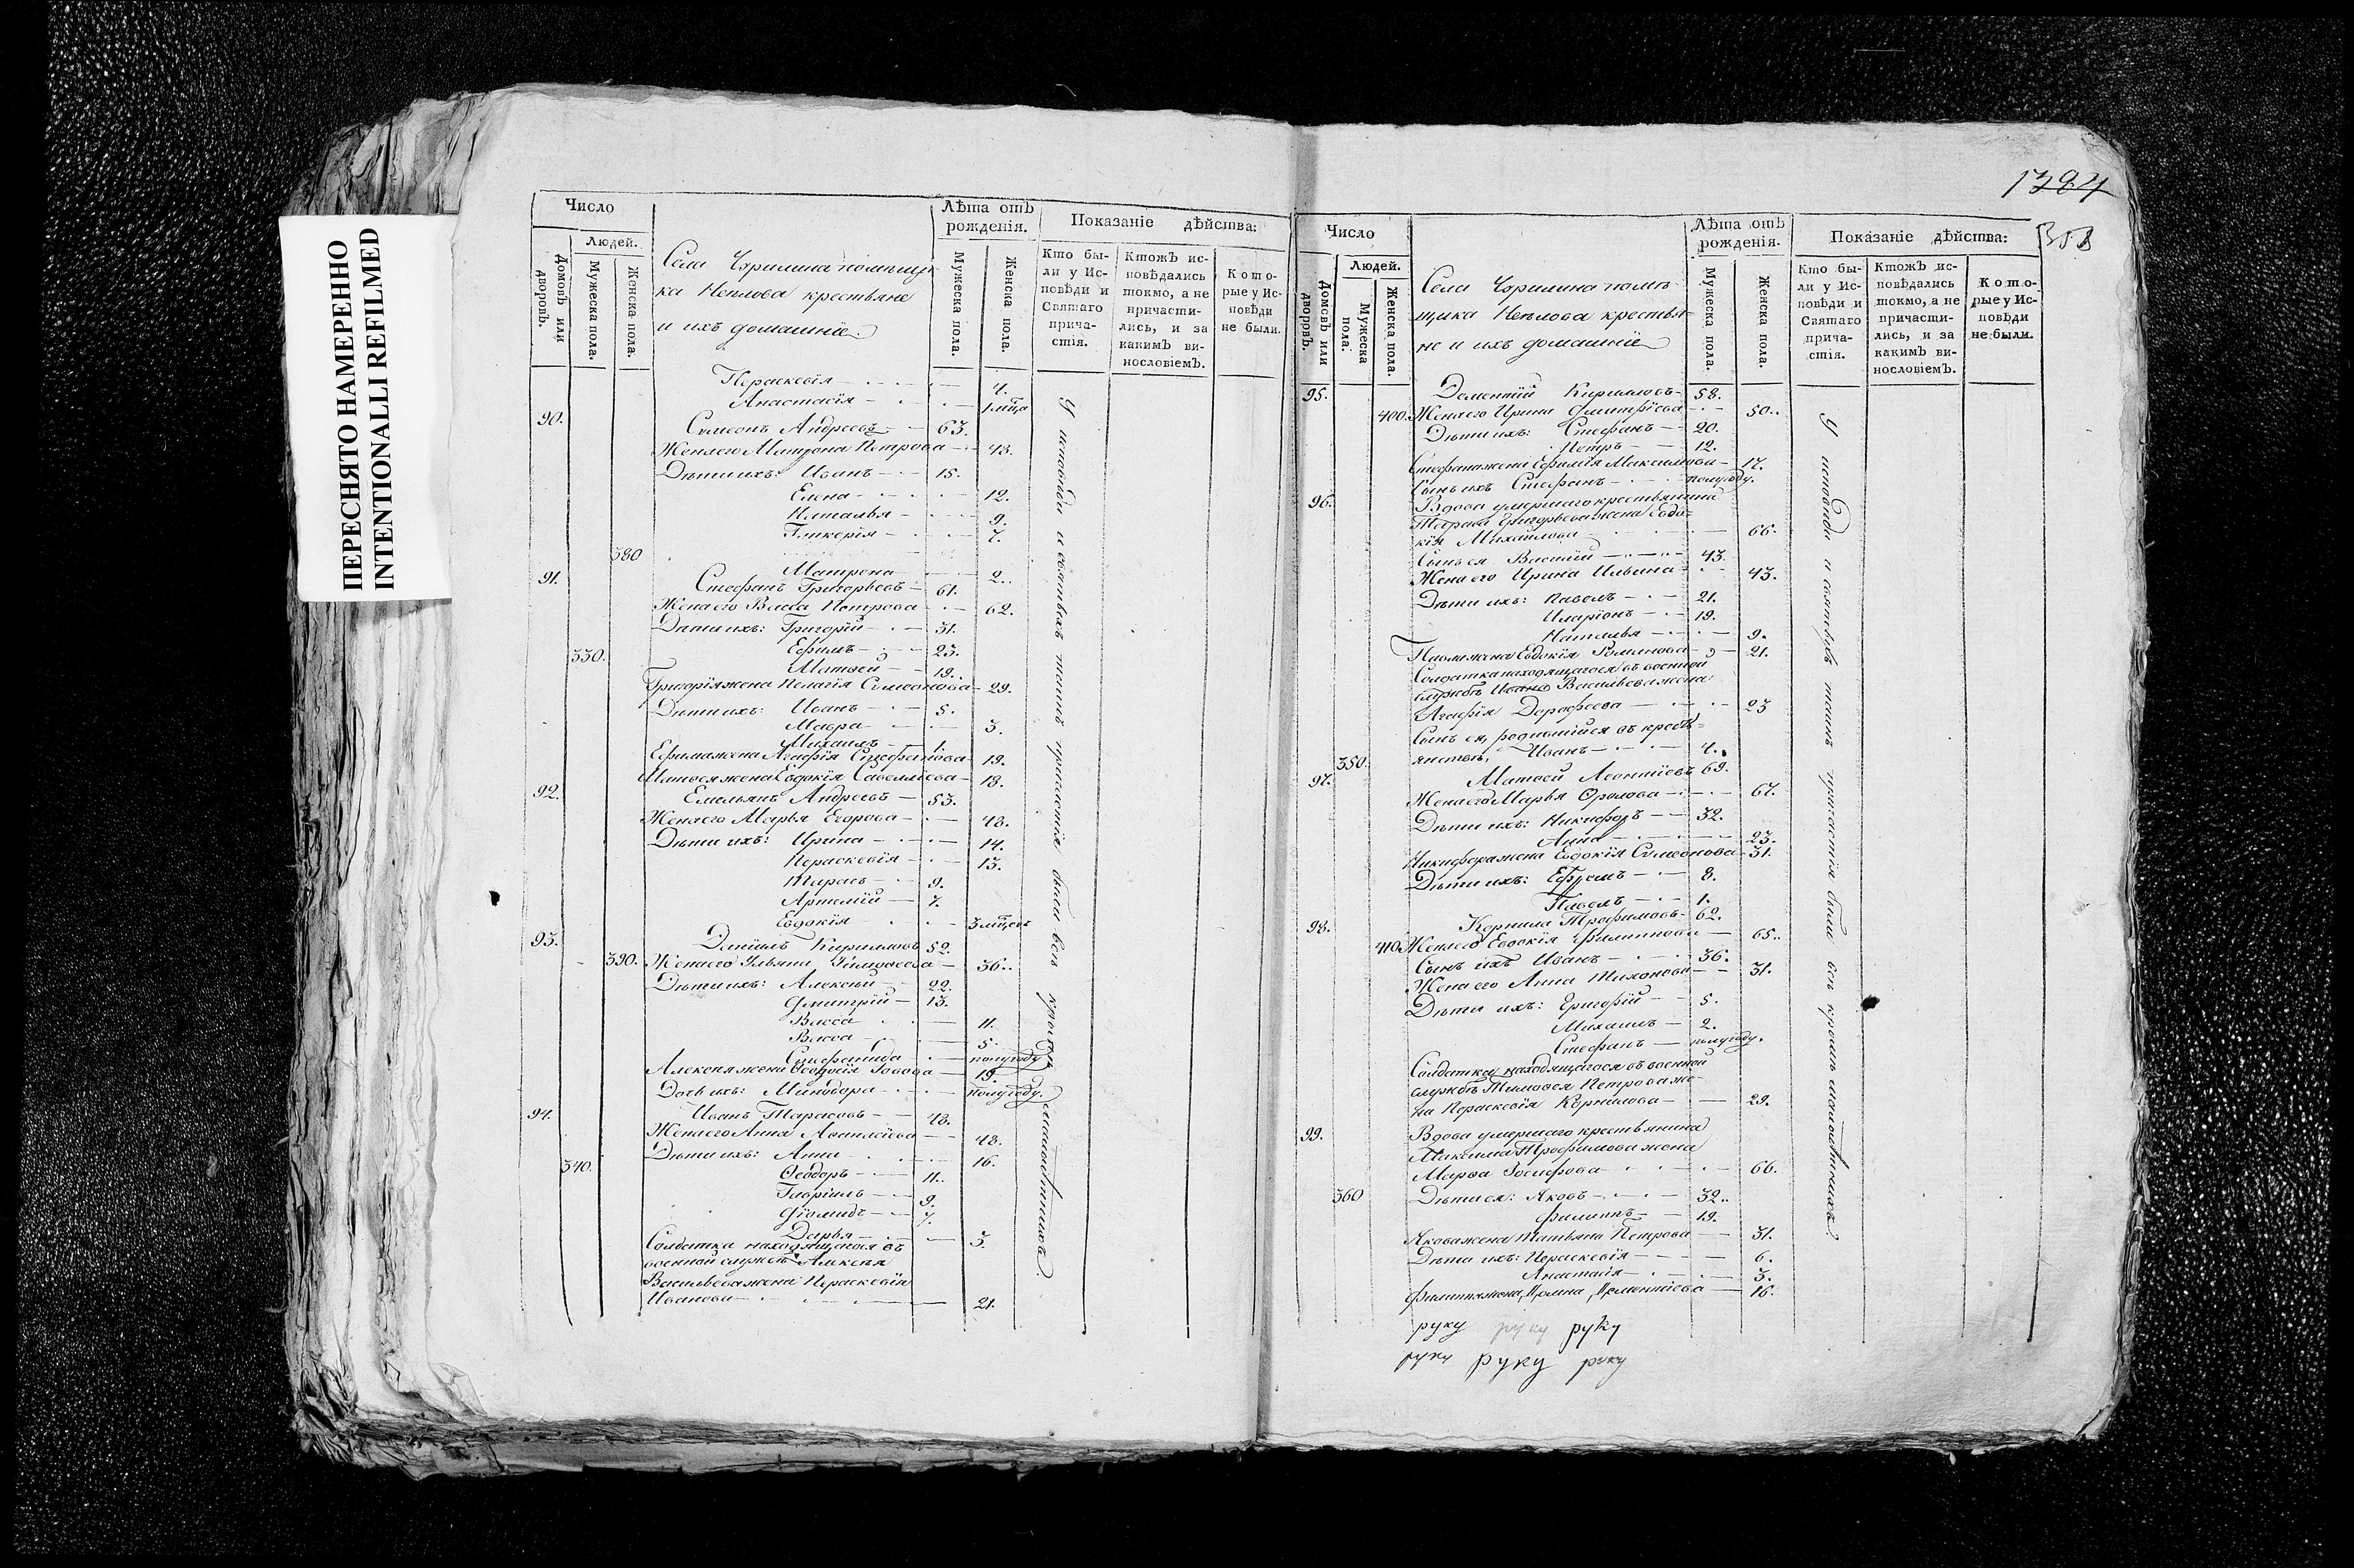 ПЕРЕСНЯТО НАМЕРЕННО
INTENTIONALLI REFILMED
Число
Людей.
Домовъ или дворовъ.
Мужеска пола.
Женска пола.
Села помѣщи-
ка крестьяне
и ихъ домашніе
Лѣта отъ рожденія.
Мужеска пола.
Женска пола.
Показаніе дѣйства:
Кто были у Исповѣди и Святаго причастія.
Ктожъ исповѣдались токмо, а не причастились, и за какимъ винословіемъ.
Которые у Исповѣди не были.
Параскевія 4.
Анастасія 1 мца
90. Сѵмеонъ Андреевъ 63.
Жена его Матрона Петрова 43.
Дѣти ихъ: Иванъ 15.
Елена 12.
Наталья 9.
Гликерія 7.
380
Матрона 2.
91. Стефанъ Григорьевъ 61.
Жена его Васса Петрова 62.
Дѣти ихъ: Григорій 31.
Ефимъ 23.
330. Матѳей 19.
Григорія жена Пелагія Сѵмеонова 29.
Дѣти ихъ: Иванъ 5.
Мавра 3.
Михаилъ 1.
Ефима жена Агафія Стефанова 19.
Матѳея жена Евдокія Савелліева 18.
92. Емельянъ Андреевъ 53.
Жена его Марья Егорова 48.
Дѣти ихъ: Ирина 14.
Параскевія 13.
Тарасъ 9.
Артемій 7.
Евдокія 3 мцевъ
93. Даніилъ Кирилловъ 52.
390. Жена его Ульяна Тимоѳеева 36.
Дѣти ихъ: Алексѣй 22.
Дмитрій 13.
Васса 11.
Васса 5.
Стефанида полугоду
Алексѣя жена Ѳеодосія 19.
Дочь ихъ: Минодора полугоду.
94. Иванъ Тарасовъ 48.
Жена его Анна 48.
Дѣти ихъ: Анна 16.
340. Ѳеодоръ 11.
Гавріилъ 9.
Діомидъ 7.
Дарья 3.
Солдатка находящагося въ
военной службѣ Алексѣя
Васильева жена Параскевія
Иванова 21.
У исповѣди и святыхъ таинъ причастія были всѣ кромѣ малолѣтнихъ.
1384
Число
Людей.
Домовъ или дворовъ.
Мужеска пола.
Женска пола.
Села помѣ-
щика крестья-
не и ихъ домашніе
Лѣта отъ рожденія.
Мужеска пола.
Женска пола.
Показаніе дѣйства:
Кто были у Исповѣди и Святаго причастія.
Ктожъ исповѣдались токмо, а не причастились, и за какимъ винословіемъ.
Которые у Исповѣди не были.
95. Дементій Кирилловъ 58.
400. Жена его Ирина Дмитріева 50.
Дѣти ихъ: Стефанъ 20.
Петръ 12.
Стефана жена Ефимія Максимова 17.
Сынъ ихъ Стефанъ полугоду.
96. Вдова умершаго крестьянина
Тараса Григорьева жена Евдо-
кія Михайлова 66.
Сынъ ея Василій 43.
Жена его Ирина Ильина 43.
Дѣти ихъ: Павелъ 21.
Иларіонъ 19.
Наталья 9.
Павла жена Евдокія Романова 21.
Солдатка находящагося въ военной
службѣ Ивана Васильева жена
Агафія Дорофеева 23
Сынъ ея, родившійся въ кресть-
янствѣ, Иванъ 4.
350.
97. Матѳей Леонтіевъ 69.
Жена его Марья Фролова 67.
Дѣти ихъ: Никифоръ 32.
Анна 23.
Никифора жена Евдокія Сѵмеонова 31.
Дѣти ихъ: Ефремъ 8.
Павелъ 1.
98. Корнила Трофимовъ 62.
410. Жена его Евдокія Филиппова 65.
Сынъ ихъ Иванъ 36.
Жена его Анна Тихонова 31.
Дѣти ихъ: Григорій 5.
Михаилъ 2.
Стефанъ полугоду.
Солдатка находящагося въ военной
службѣ Тимоѳея Петрова же-
на Параскевія Корнилова 29.
99. Вдова умершаго крестьянина
Максима Трофимова жена
Марѳа Іосифова 66.
360 Дѣти ея: Яковъ 32.
Филиппъ 19.
Якова жена Татьяна Петрова 31.
Дѣти ихъ: Параскевія 6.
Анастасія 3.
Филиппа жена 16.
У исповѣди и святыхъ таинъ причастія были всѣ кромѣ малолѣтнихъ.
руку руку руку
руку руку руку